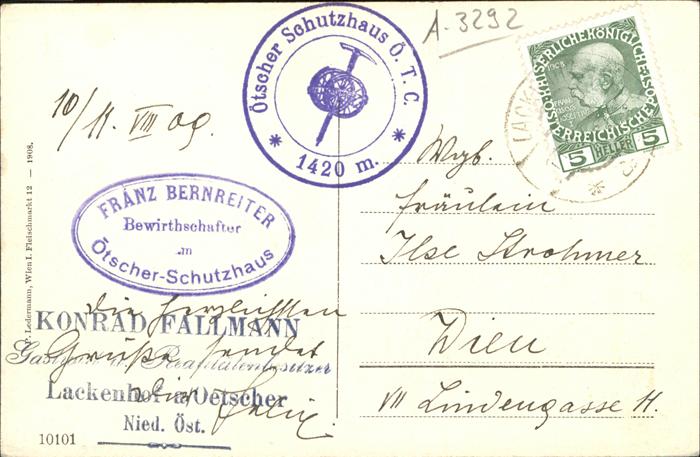 A.3292
Ötscher Schutzhaus Ö. T. C.
* 1420 m. *
KAISERLICHE KÖNIGLICHE
ÖSTERREICHISCHE POST
5 HELLER 5
LACK
10/11. VIII 09.
FRANZ BERNREITER
Bewirthschafter
im
Ötscher-Schutzhaus
Wgb.
Fräulein
Ilse Strohmer
Wien
VII Lindengasse 11.
die herzlichsten
Grüße sendet
KONRAD FALLMANN
Gasthaus- u. Realitätenbesitzer
Lackenhof a/Oetscher
Nied. Öst.
Ledermann, Wien I. Fleischmarkt 12 — 1908.
10101